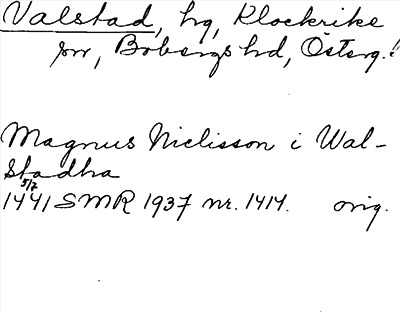 Valstad, hg, Klockrike
sn, Bobergs hd, Österg.!
Magnus Nielisson i Wal-
stadha
5/7
1441 SMR 1937 nr. 1414. orig.